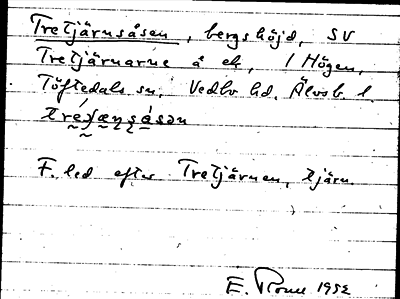 Tretjärnsåsen, bergshöjd, SV
Tretjärnarne å ek, 1 Högen,
Töftedals sn, Vedbo hd, Älvsb. l.
F. led efter Tretjärnen, tjärn.
E. 1952